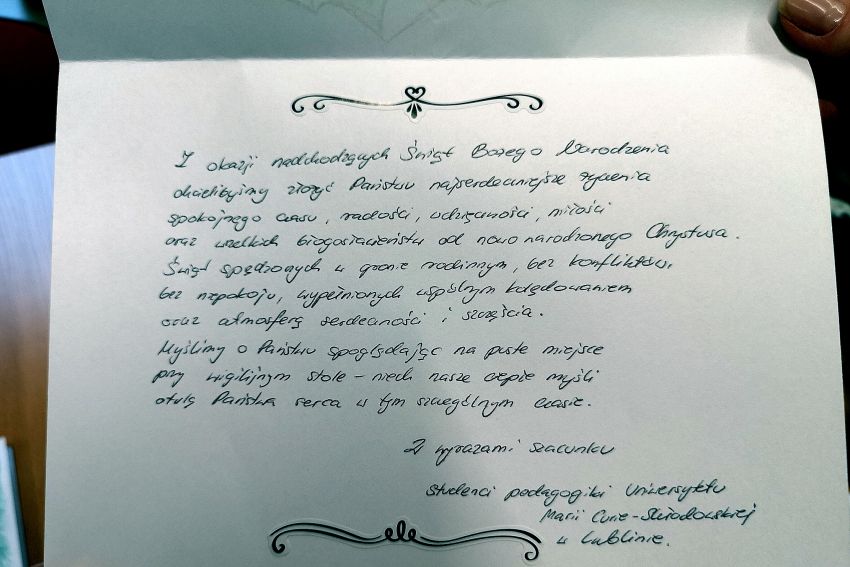 Z okazji nadchodzących Świąt Bożego Narodzenia
chcielibyśmy złożyć Państwu najserdeczniejsze życzenia
spokojnego czasu, radości, wdzięczności, miłości
oraz wszelkich błogosławieństw od nowo narodzonego Chrystusa.
Świąt spędzonych w gronie rodzinnym, bez konfliktów,
bez niepokoju, wypełnionych wspólnym kolędowaniem
oraz atmosferą serdeczności i szczęścia.
Myślimy o Państwu spoglądając na puste miejsce
przy wigilijnym stole – niech nasze ciepłe myśli
otulą Państwa serca w tym szczególnym czasie.
Z wyrazami szacunku
studenci pedagogiki Uniwersytetu
Marii Curie-Skłodowskiej
w Lublinie.